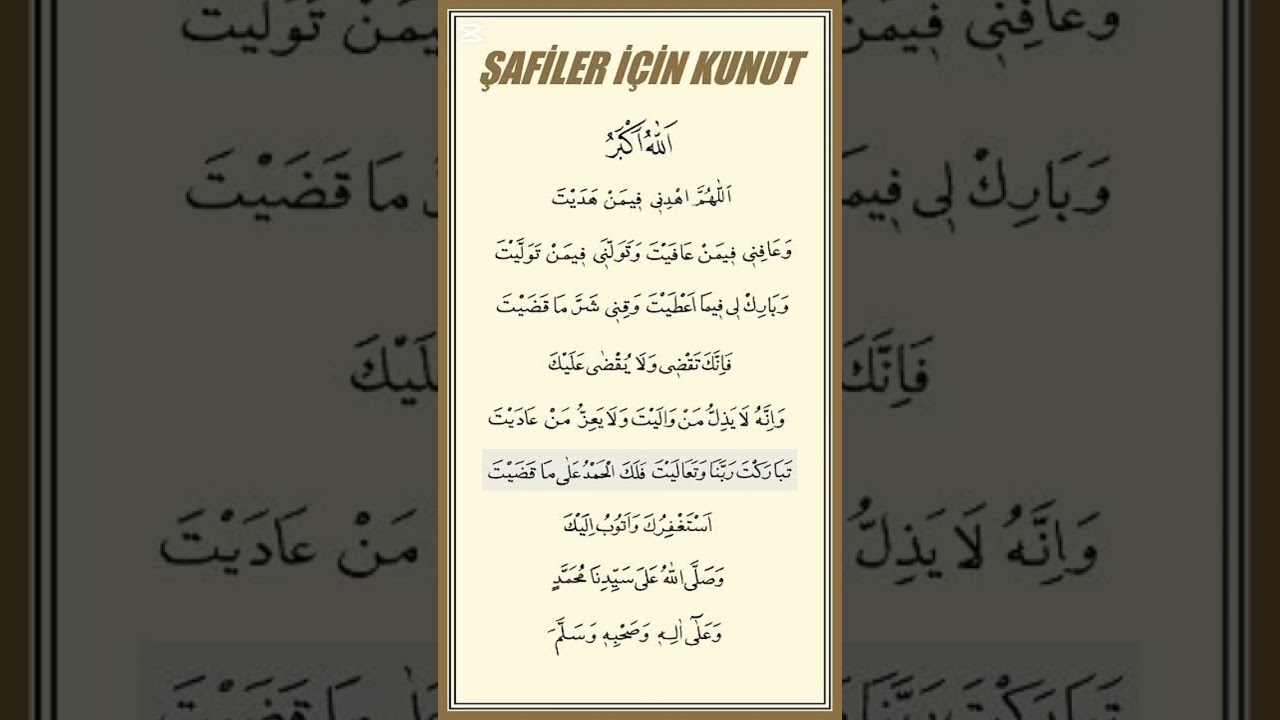 ŞAFİLER İÇİN KUNUT
اَللّٰهُ اَكْبَرُ
اَللّٰهُمَّ اهْدِنِي فِيمَنْ هَدَيْتَ
وَعَافِنِي فِيمَنْ عَافَيْتَ وَتَوَلَّنِي فِيمَنْ تَوَلَّيْتَ
وَبَارِكْ لِي فِيمَا اَعْطَيْتَ وَقِنِي شَرَّ مَا قَضَيْتَ
فَاِنَّكَ تَقْضِي وَلَا يُقْضٰى عَلَيْكَ
وَاِنَّهُ لَا يَذِلُّ مَنْ وَالَيْتَ وَلَا يَعِزُّ مَنْ عَادَيْتَ
تَبَارَكْتَ رَبَّنَا وَتَعَالَيْتَ فَلَكَ الْحَمْدُ عَلٰى مَا قَضَيْتَ
اَسْتَغْفِرُكَ وَاَتُوبُ اِلَيْكَ
وَصَلَّى اللهُ عَلَى سَيِّدِنَا مُحَمَّدٍ
وَعَلٰٓى اٰلِهِ وَصَحْبِهِ وَسَلَّمَ